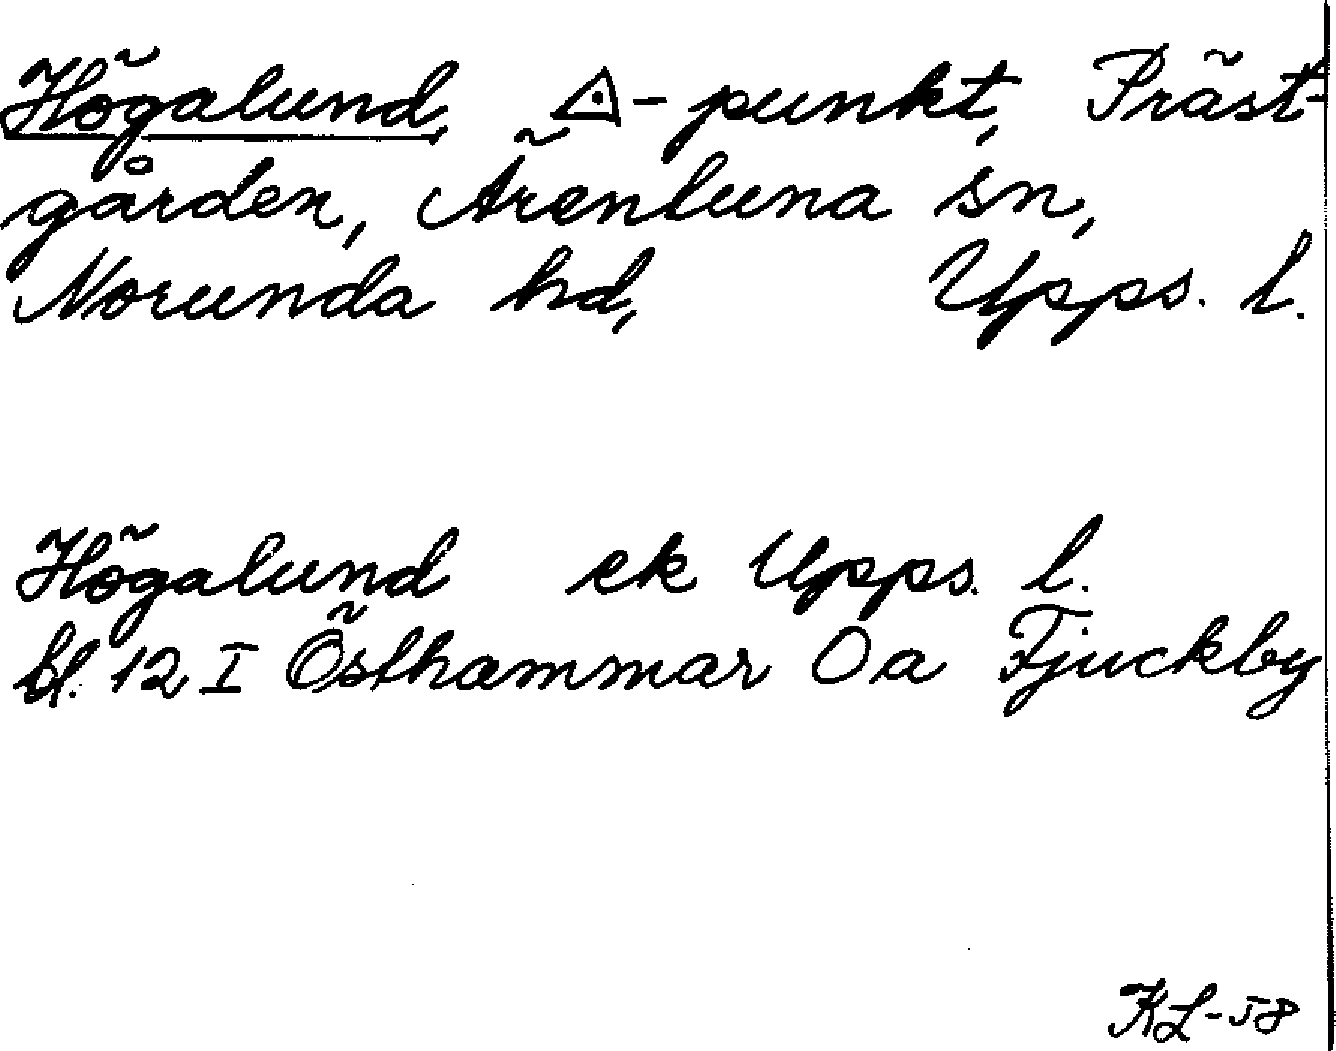 Högalund, ◬-punkt, Präst-
gården, Ärentuna sn,
Norunda hd, Upps. l.
Högalund ek Upps. l.
bl. 12 I Östhammar 0a Fjuckby
KL-58